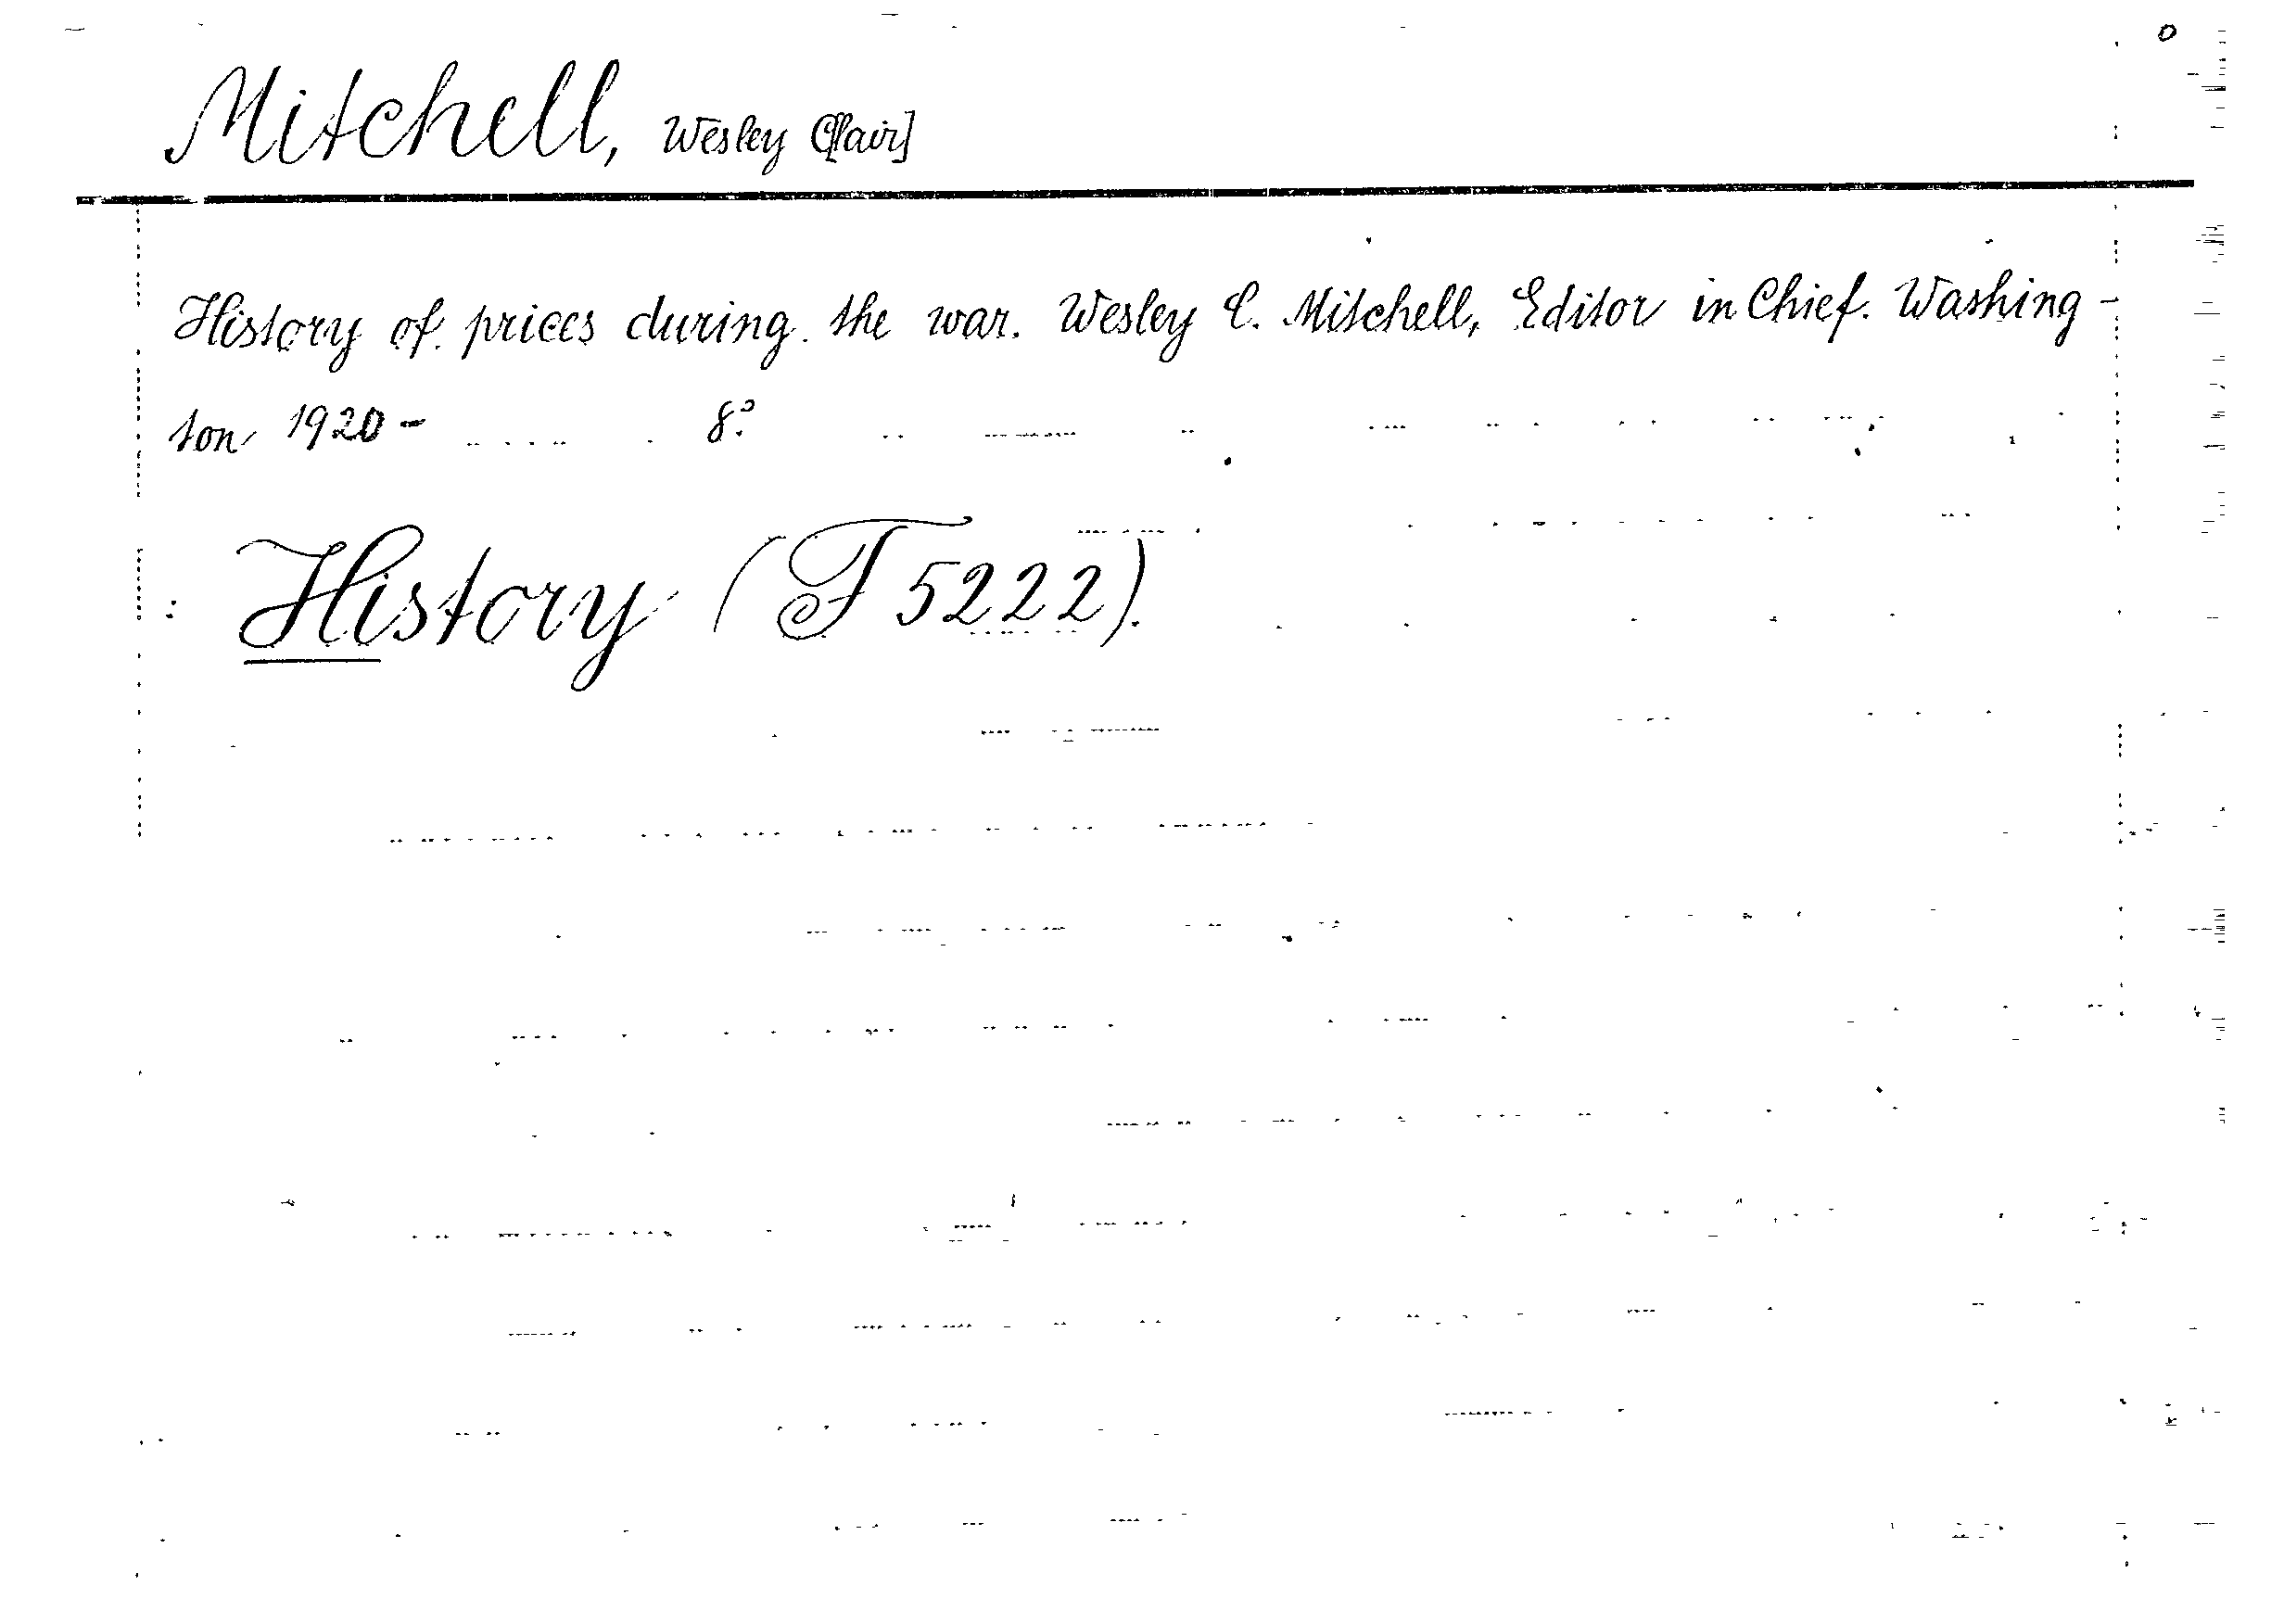 Mitchell, Wesley C[lair]
History of prices during the war. Wesley C. Mitchell, Editor in Chief. Washing-
ton 1920- 8º.
: History (F 5222).